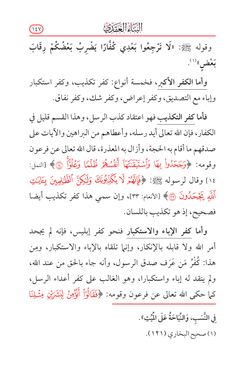 البناء العقدي
(١٤٧)
وقوله ﷺ: «لَا تَرْجِعُوا بَعْدِي كُفَّارًا يَضْرِبُ بَعْضُكُمْ رِقَابَ
بَعْضٍ»(١).
وأما الكفر الأكبر، فخمسة أنواع: كفر تكذيب، وكفر استكبار
وإباء مع التصديق، وكفر إعراض، وكفر شك، وكفر نفاق.
فأما كفر التكذيب فهو اعتقاد كذب الرسل، وهذا القسم قليل في
الكفار، فإن الله تعالى أيد رسله، وأعطاهم من البراهين والآيات على
صدقهم ما أقام به الحجة، وأزال به المعذرة، قال الله تعالى عن فرعون
وقومه: ﴿وَجَحَدُوا بِهَا وَاسْتَيْقَنَتْهَا أَنفُسُهُمْ ظُلْمًا وَعُلُوًّا﴾ [النمل:
١٤] وقال لرسوله ﷺ: ﴿فَإِنَّهُمْ لَا يُكَذِّبُونَكَ وَلَٰكِنَّ الظَّالِمِينَ بِآيَاتِ
اللَّهِ يَجْحَدُونَ﴾ [الأنعام: ٣٣]، وإن سمي هذا كفر تكذيب أيضا
فصحيح، إذ هو تكذيب باللسان.
وأما كفر الإباء والاستكبار فنحو كفر إبليس، فإنه لم يجحد
أمر الله ولا قابله بالإنكار، وإنما تلقاه بالإباء والاستكبار، ومن
هذا: كُفْرُ مَن عَرَف صدق الرسول، وأنه جاء بالحق من عند الله،
ولم ينقد له إباء واستكبارا، وهو الغالب على كفر أعداء الرسل،
كما حكى الله تعالى عن فرعون وقومه: ﴿فَقَالُوا أَنُؤْمِنُ لِبَشَرَيْنِ مِثْلِنَا
فِي النَّسَبِ، وَالنِّيَاحَةُ عَلَى الْمَيِّتِ».
(١) صحيح البخاري (١٢١).